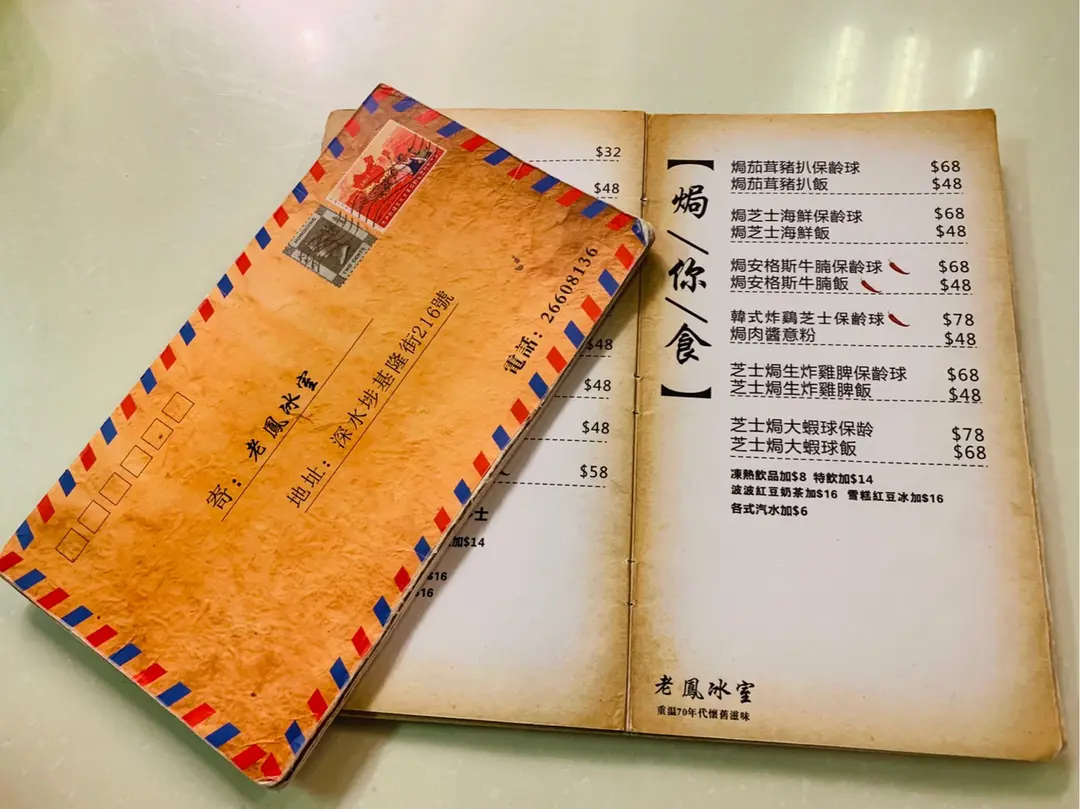 寄：老鳳冰室
地址：深水埗基隆街216號
電話：26608136
$32
$48
$48
$48
$48
$58
士
加$14
$16
$16
【焗/你/食】
焗茄茸豬扒保齡球 $68
焗茄茸豬扒飯 $48
焗芝士海鮮保齡球 $68
焗芝士海鮮飯 $48
焗安格斯牛腩保齡球 $68
焗安格斯牛腩飯 $48
韓式炸鷄芝士保齡球 $78
焗肉醬意粉 $48
芝士焗生炸雞脾保齡球 $68
芝士焗生炸雞脾飯 $48
芝士焗大蝦球保龄 $78
芝士焗大蝦球飯 $68
凍熱飲品加$8 特飲加$14
波波紅豆奶茶加$16 雪糕紅豆冰加$16
各式汽水加$6
老鳳冰室
重溫70年代懷舊滋味